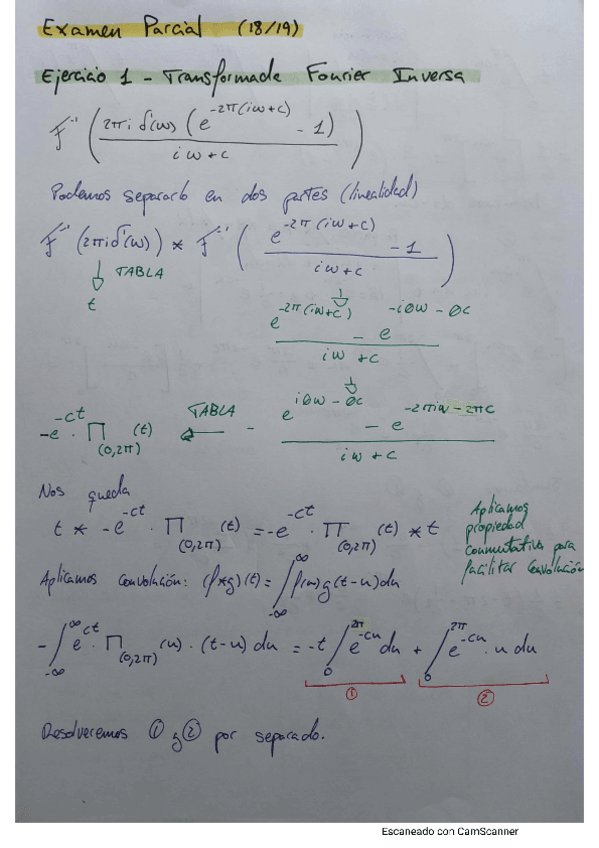 Examen Parcial (18/19)
Ejercicio 1 - Transformada Fourier Inversa
F⁻¹ ( 2πi δ'(ω) (e^{-2π(iω+c)} - 1) / (iω+c) )
Podemos separarlo en dos partes (linealidad)
F⁻¹ (2πi δ'(ω)) * F⁻¹ ( (e^{-2π(iω+c)} - 1) / (iω+c) )
↓ TABLA
t
(e^{-2π(iω+c)} - e^{-i0ω-0c}) / (iω+c)
-e^{-ct} · Π_{(0,2π)} (t) ← TABLA - (e^{i0ω-0c} - e^{-2πiω-2πc}) / (iω+c)
Nos queda
t * -e^{-ct} · Π_{(0,2π)} (t) = -e^{-ct} · Π_{(0,2π)} (t) * t
Aplicamos
propiedad
conmutativa para
facilitar convolución
Aplicamos convolución: (f*g)(t) = ∫_{-∞}^{∞} f(u) g(t-u) du
-∫_{-∞}^{∞} e^{ct} · Π_{(0,2π)} (u) · (t-u) du = -t ∫_0^{2π} e^{-cu} du + ∫_0^{2π} e^{-cu} · u du
① ②
Resolveremos ① y ② por separado.
Escaneado con CamScanner